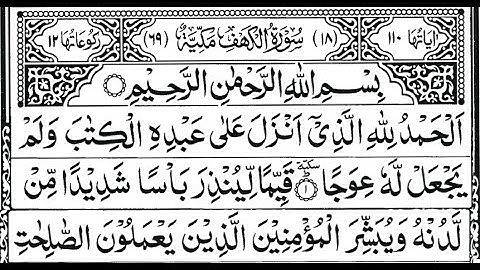 اٰیَاتُهَا ۱۱۰ (۱۸) سُوْرَةُ الْكَهْفِ مَكِّیَّةٌ (۶۹) رُكُوْعَاتُهَا ۱۲
بِسْمِ اللّٰهِ الرَّحْمٰنِ الرَّحِیْمِ
اَلْحَمْدُ لِلّٰهِ الَّذِیْۤ اَنْزَلَ عَلٰی عَبْدِهِ الْكِتٰبَ وَلَمْ
یَجْعَلْ لَّهٗ عِوَجًا ؕ سكتة ۱ قَیِّمًا لِّیُنْذِرَ بَاْسًا شَدِیْدًا مِّنْ
لَّدُنْهُ وَیُبَشِّرَ الْمُؤْمِنِیْنَ الَّذِیْنَ یَعْمَلُوْنَ الصّٰلِحٰتِ